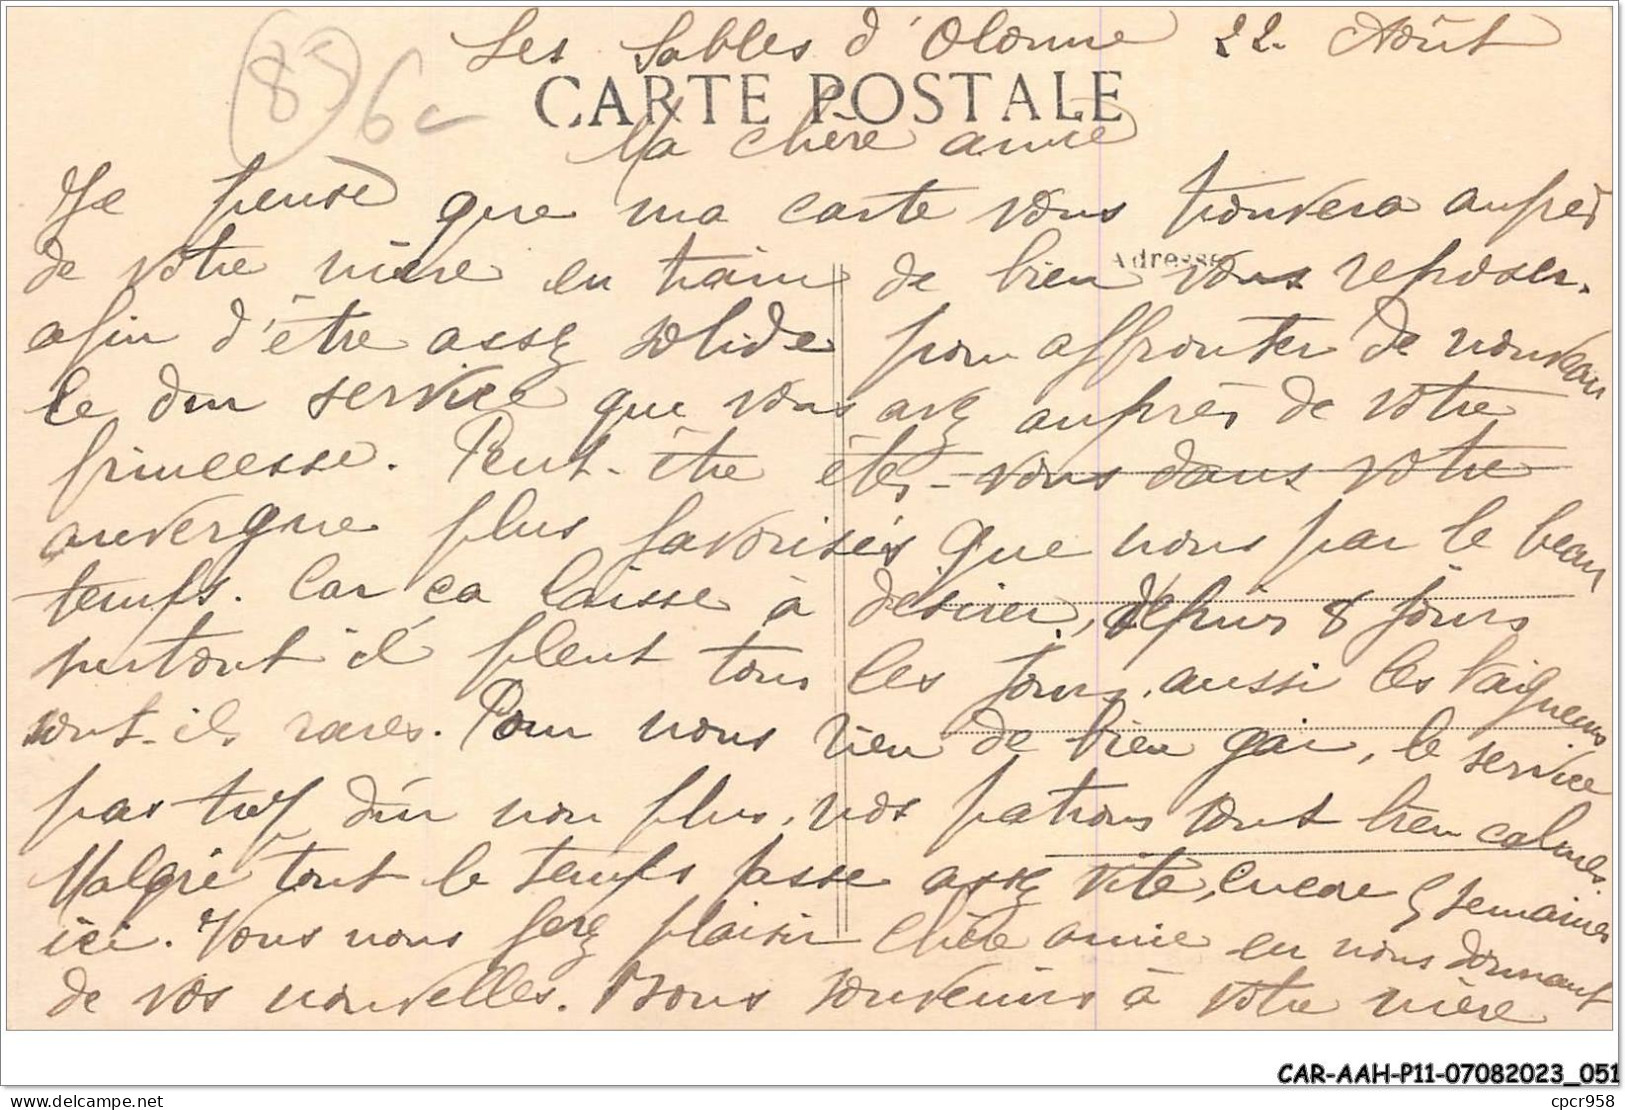 Les Sables d'Olonne 22 Août
85 6
CARTE POSTALE
Ma chère amie
Je pense que ma carte vous trouvera auprès
Adresse
de votre mère en train de bien vous reposer.
afin d'être assez solide pour affronter de nouveau
le dur service que vous avez auprès de votre
princesse. Peut-être êtes-vous dans votre
auvergne plus favorisés que nous par le beau
temps. Car ça laisse à désirer, depuis 8 jours
surtout il pleut tous les jours, aussi les baigneurs
sont-ils rares. Pour nous rien de bien gai, le service
pas trop dur non plus, nos patrons sont bien calmes.
Malgré tout le temps passe assez vite, encore 5 semaines
ici. Vous nous ferez plaisir chère amie en nous donnant
de vos nouvelles. Bons souvenirs à votre mère
CAR-AAH-P11-07082023_051
delcampe.net
cpcr958